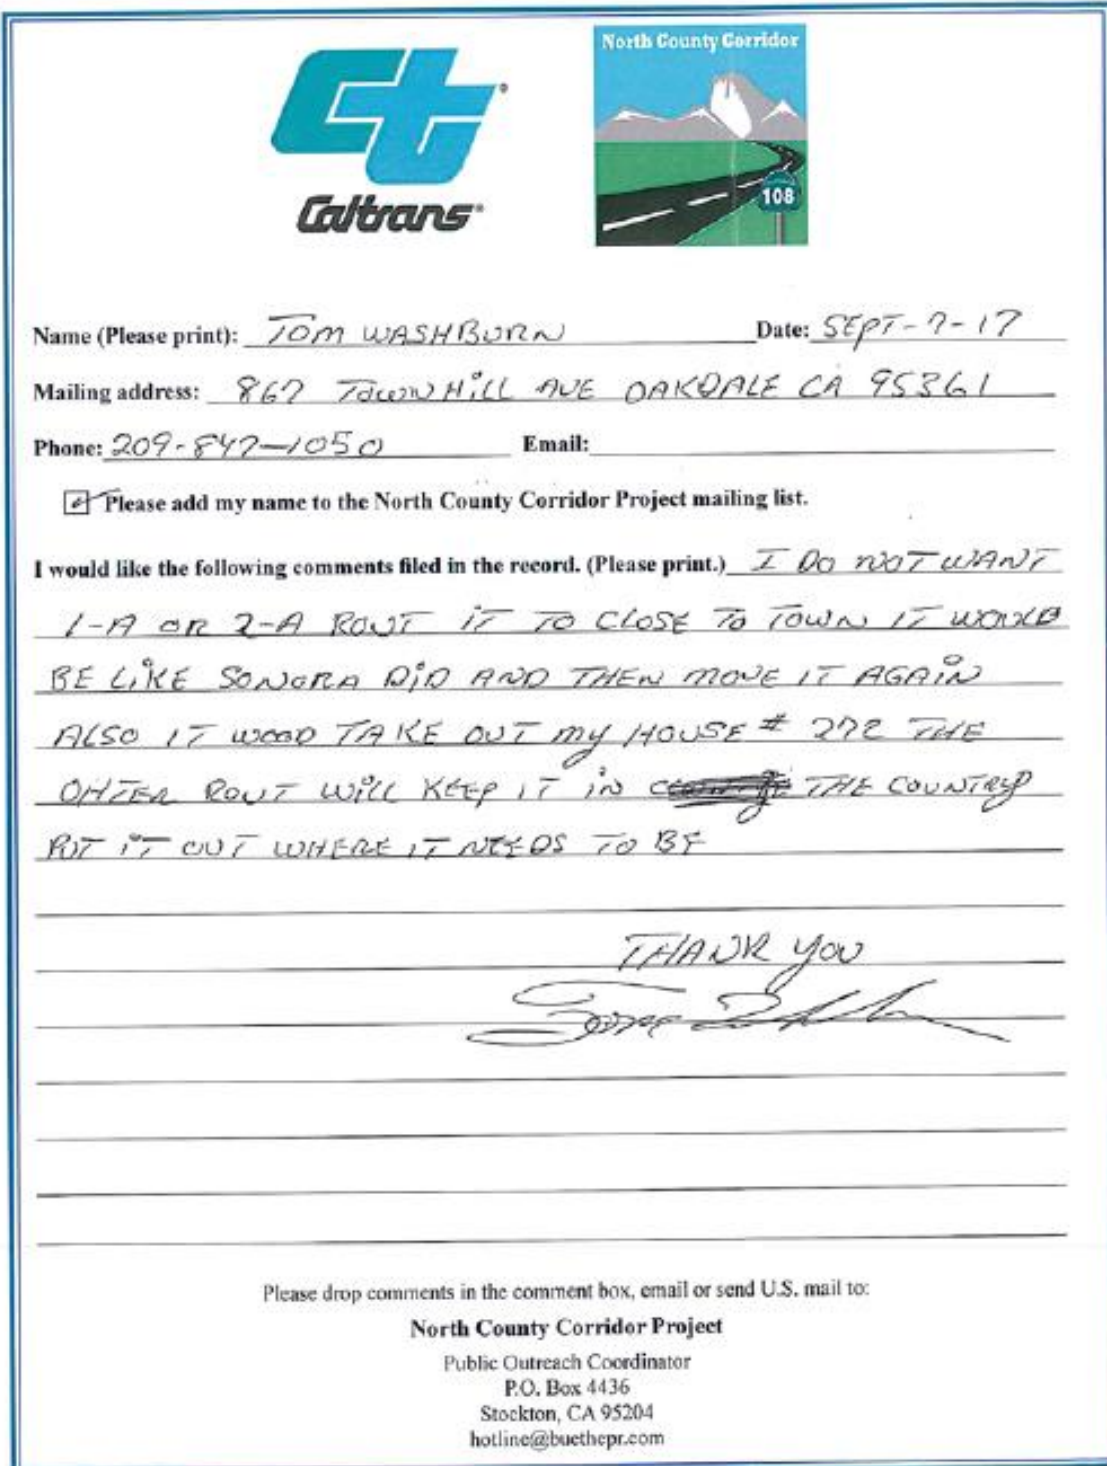 North County Corridor
Ct
Caltrans
108
Name (Please print): TOM WASHBURN Date: SEPT-7-17
Mailing address: 867 TOWNHILL AVE OAKDALE CA 95361
Phone: 209-847-1050 Email:
Please add my name to the North County Corridor Project mailing list.
I would like the following comments filed in the record. (Please print.) I DO NOT WANT
1-A OR 2-A ROUT IT TO CLOSE TO TOWN IT WOULD
BE LIKE SONORA DID AND THEN MOVE IT AGAIN
ALSO IT WOOD TAKE OUT MY HOUSE # 272 THE
OHTER ROUT WILL KEEP IT IN THE COUNTRY
PUT IT OUT WHERE IT NEEDS TO BE
THANK YOU
Please drop comments in the comment box, email or send U.S. mail to:
North County Corridor Project
Public Outreach Coordinator
P.O. Box 4436
Stockton, CA 95204
hotline@buethepr.com